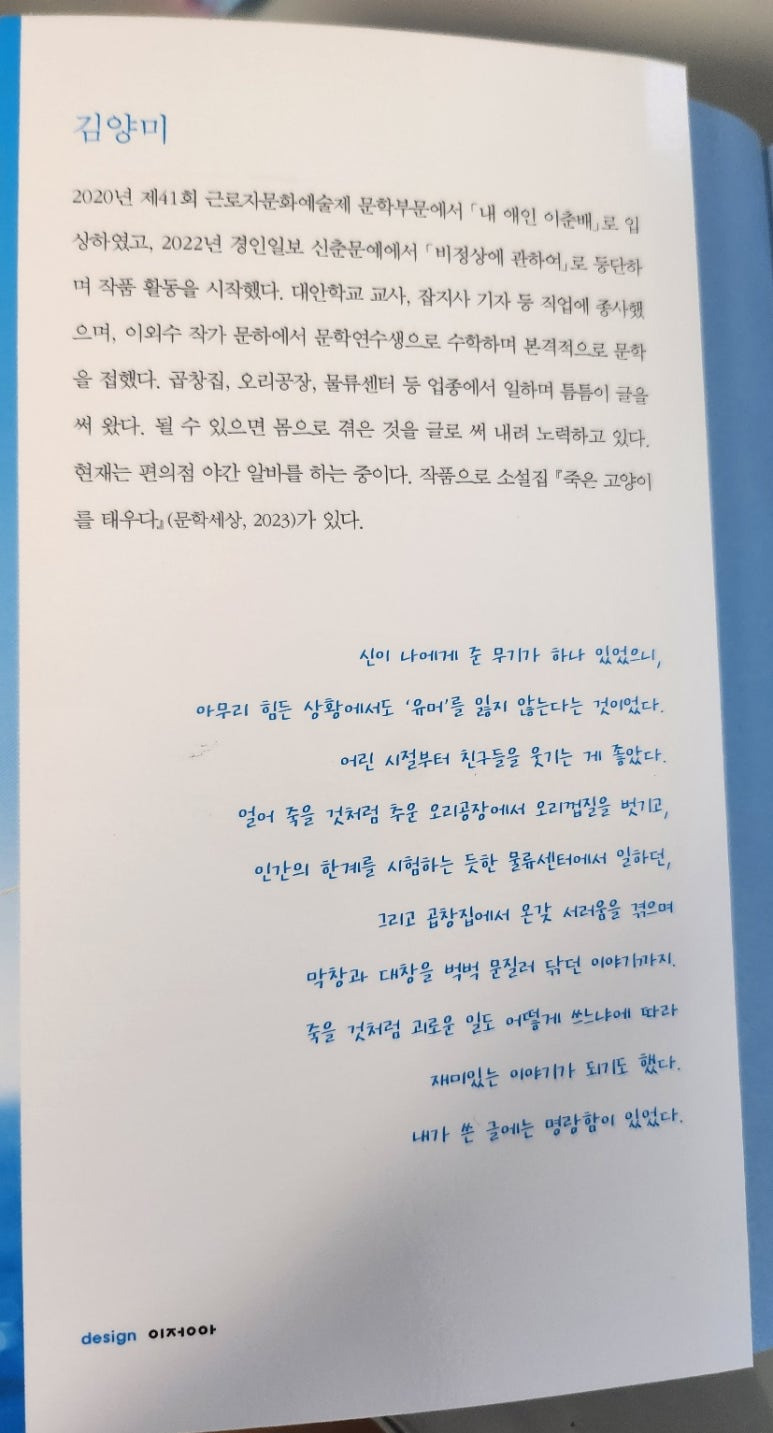 김양미
2020년 제41회 근로자문화예술제 문학부문에서 「내 애인 이춘배」로 입
상하였고, 2022년 경인일보 신춘문예에서 「비정상에 관하여」로 등단하
며 작품 활동을 시작했다. 대안학교 교사, 잡지사 기자 등 직업에 종사했
으며, 이외수 작가 문하에서 문학연수생으로 수학하며 본격적으로 문학
을 접했다. 곱창집, 오리공장, 물류센터 등 업종에서 일하며 틈틈이 글을
써 왔다. 될 수 있으면 몸으로 겪은 것을 글로 써 내려 노력하고 있다.
현재는 편의점 야간 알바를 하는 중이다. 작품으로 소설집 『죽은 고양이
를 태우다』(문학세상, 2023)가 있다.
신이 나에게 준 무기가 하나 있었으니,
아무리 힘든 상황에서도 ‘유머’를 잃지 않는다는 것이었다.
어린 시절부터 친구들을 웃기는 게 좋았다.
얼어 죽을 것처럼 추운 오리공장에서 오리껍질을 벗기고,
인간의 한계를 시험하는 듯한 물류센터에서 일하던,
그리고 곱창집에서 온갖 서러움을 겪으며
막창과 대창을 벅벅 문질러 닦던 이야기까지.
죽을 것처럼 괴로운 일도 어떻게 쓰느냐에 따라
재미있는 이야기가 되기도 했다.
내가 쓴 글에는 명랑함이 있었다.
design 이저아